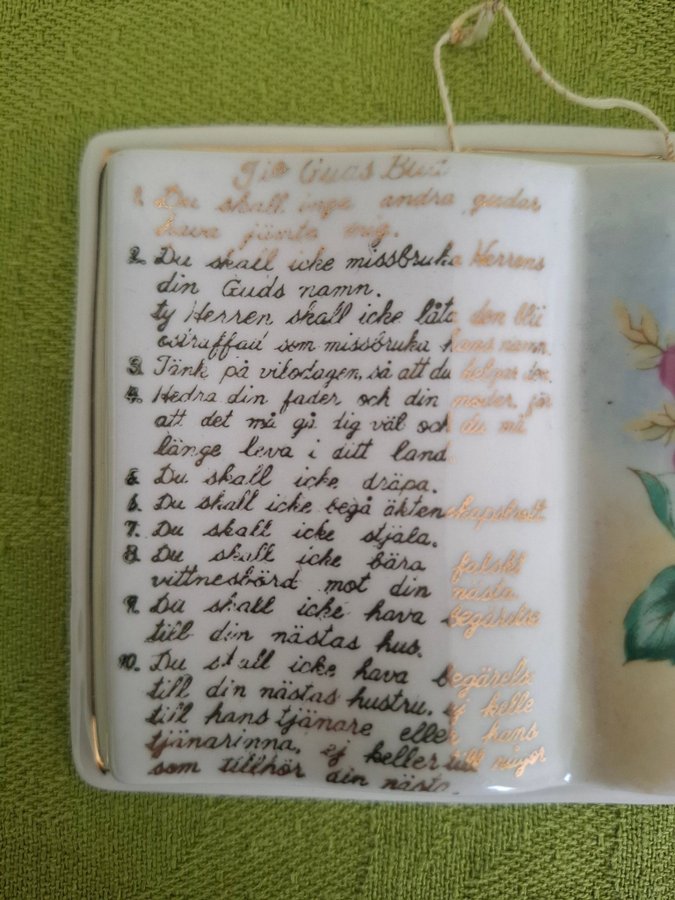 Tio Guds Bud
1. Du skall inga andra gudar
hava jämte mig.
2. Du skall icke missbruka Herrens
din Guds namn.
ty Herren skall icke låta den bli
ostraffad som missbruka hans namn.
3. Tänk på vilodagen, så att du helgar den.
4. Hedra din fader och din moder, för
att det må gå dig väl och du må
länge leva i ditt land.
5. Du skall icke dräpa.
6. Du skall icke begå äktenskapsbrott.
7. Du skall icke stjäla.
8. Du skall icke bära falskt
vittnesbörd mot din nästa.
9. Du skall icke hava begärelse
till din nästas hus.
10. Du skall icke hava begärelse
till din nästas hustru, ej heller
till hans tjänare eller hans
tjänarinna, ej heller till något
som tillhör din nästa.